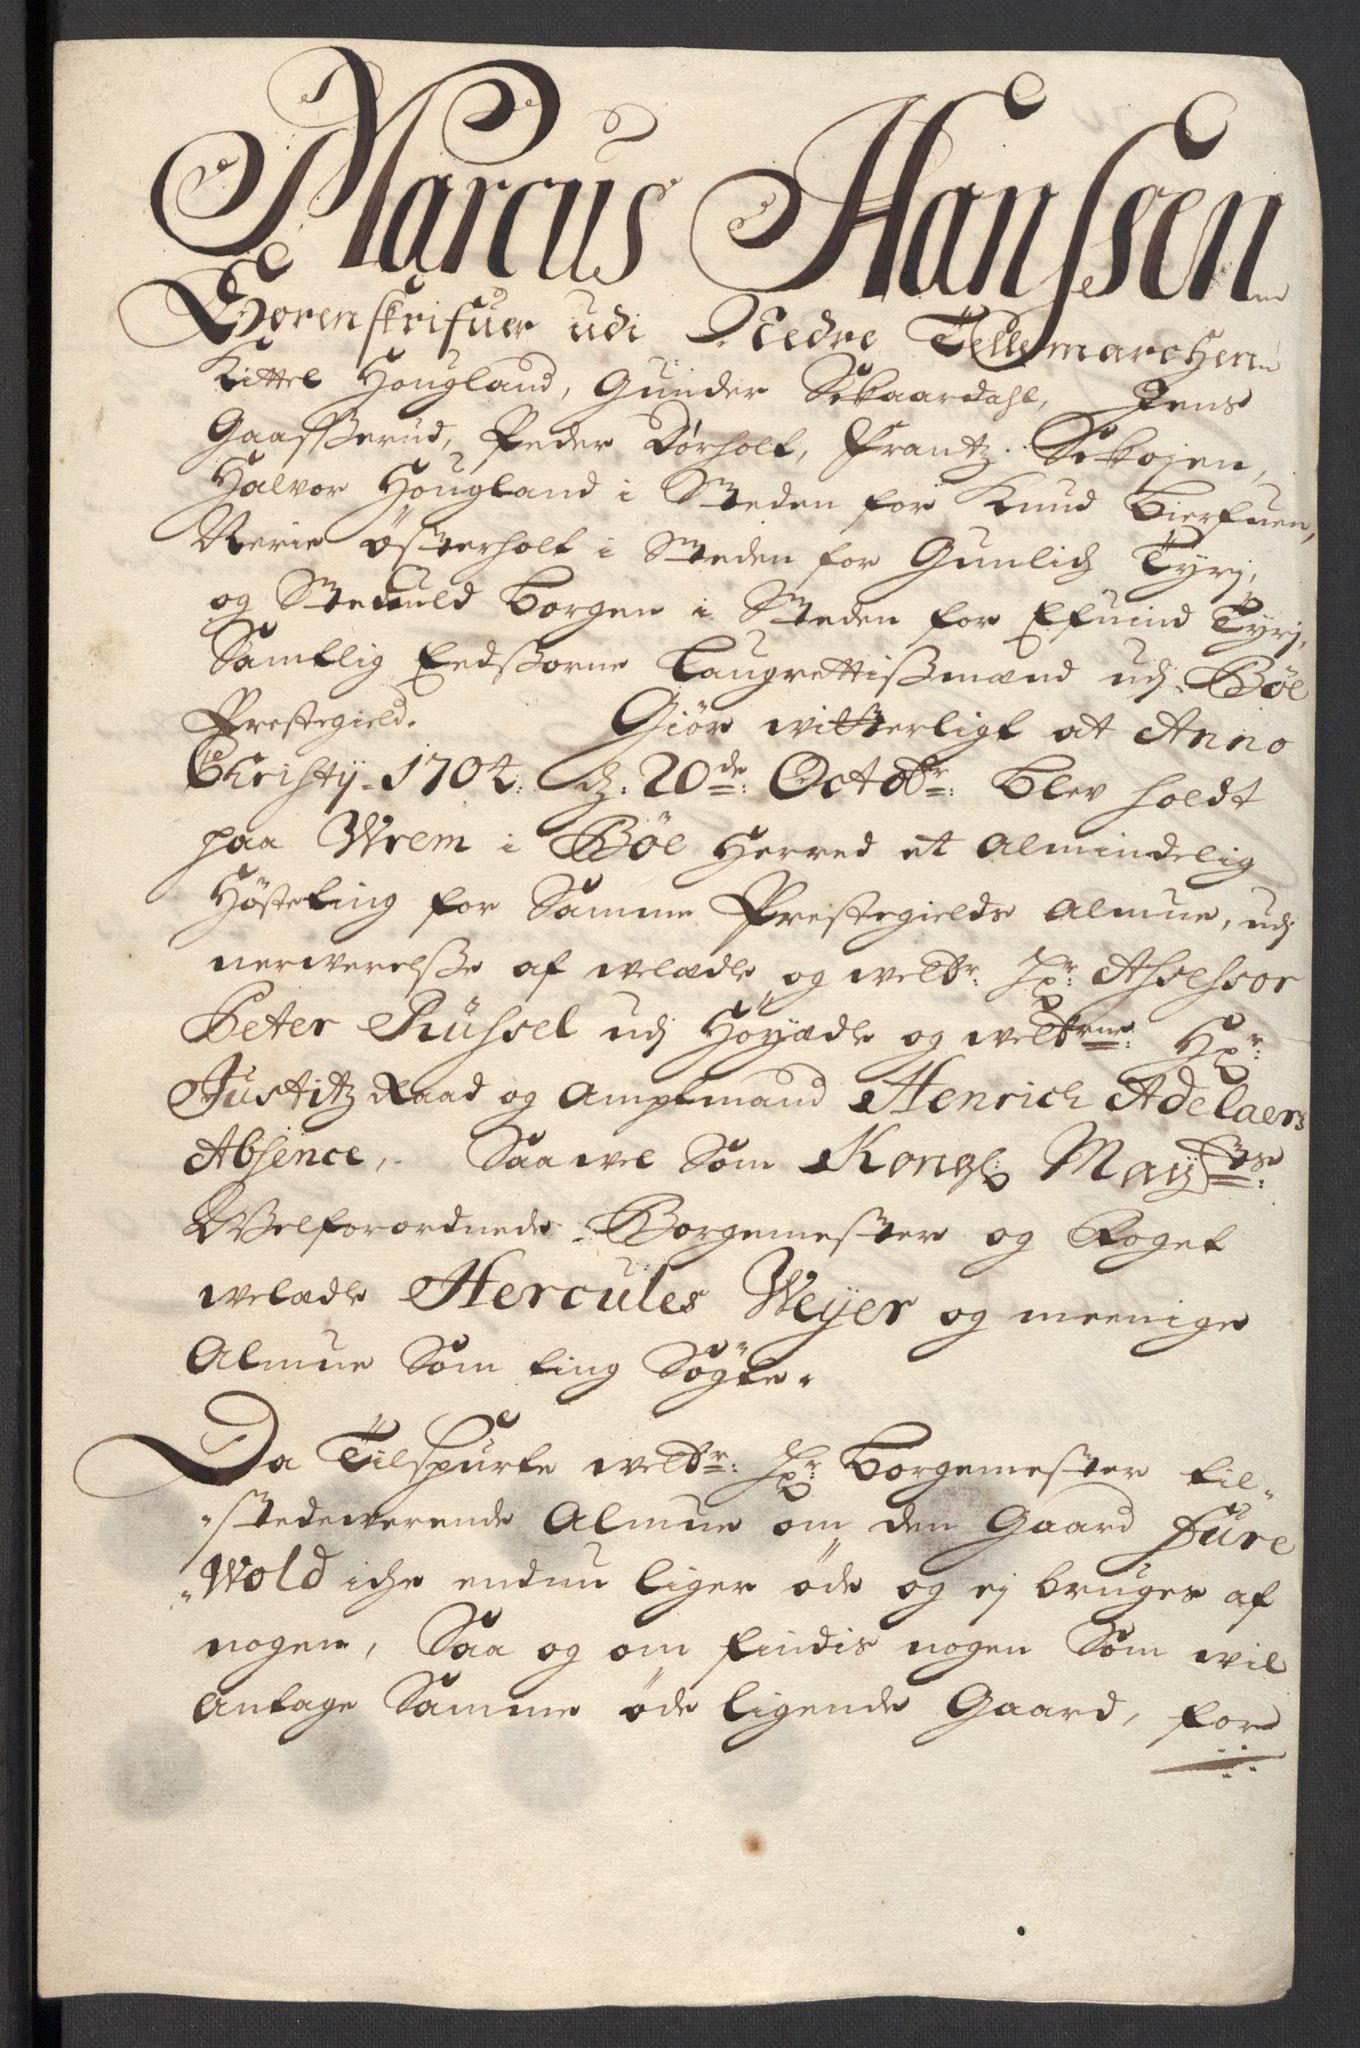 Marcus Hanssen
Sorenskrifuer udi Nedre Tellemarchen
Kittel Hougland, Gunder Skaardahl, Jens
Gaasserud, Peder Dørholt, Frantz Skojen,
Halvor Hougland i Steden for Knud Bierfuen,
Nerie Østerholt i Steden for Gunlich Tyrj,
og Steenuld Borgen i Steden for Efuind Tyrj,
Samtlig Eedsorne Laugrettißmænd udj Bøe
Prestegield. Giør witterligt at Anno
Christij 1704. d. 20de: Octobr: blev holdt
paa Wrem i Bøe Herred et almindelig
Høsteting for Samme Prestegields Almue, udj
nerwerelße af welædle og weltbr: Hr: Assessor
Peter Rüssel udj Höyædle og weltbrne: Hr:
Justitz Raad og Amptmand Henrich Adelaers
Absence, Saawel Som Kongl: Mayts:
Welforordnede Borgemester og Foget
welædle Hercules Weyer og meenige
Almue Som ting Søgte.
Da Tilspurte weltbr: Hr: Borgemester til-
stedewerende Almue om den Gaard Fure
Wold iche endnu liger øde og ej bruges af
nogen, Saa og om findis nogen Som wil
antage Samme øde ligende Gaard, for